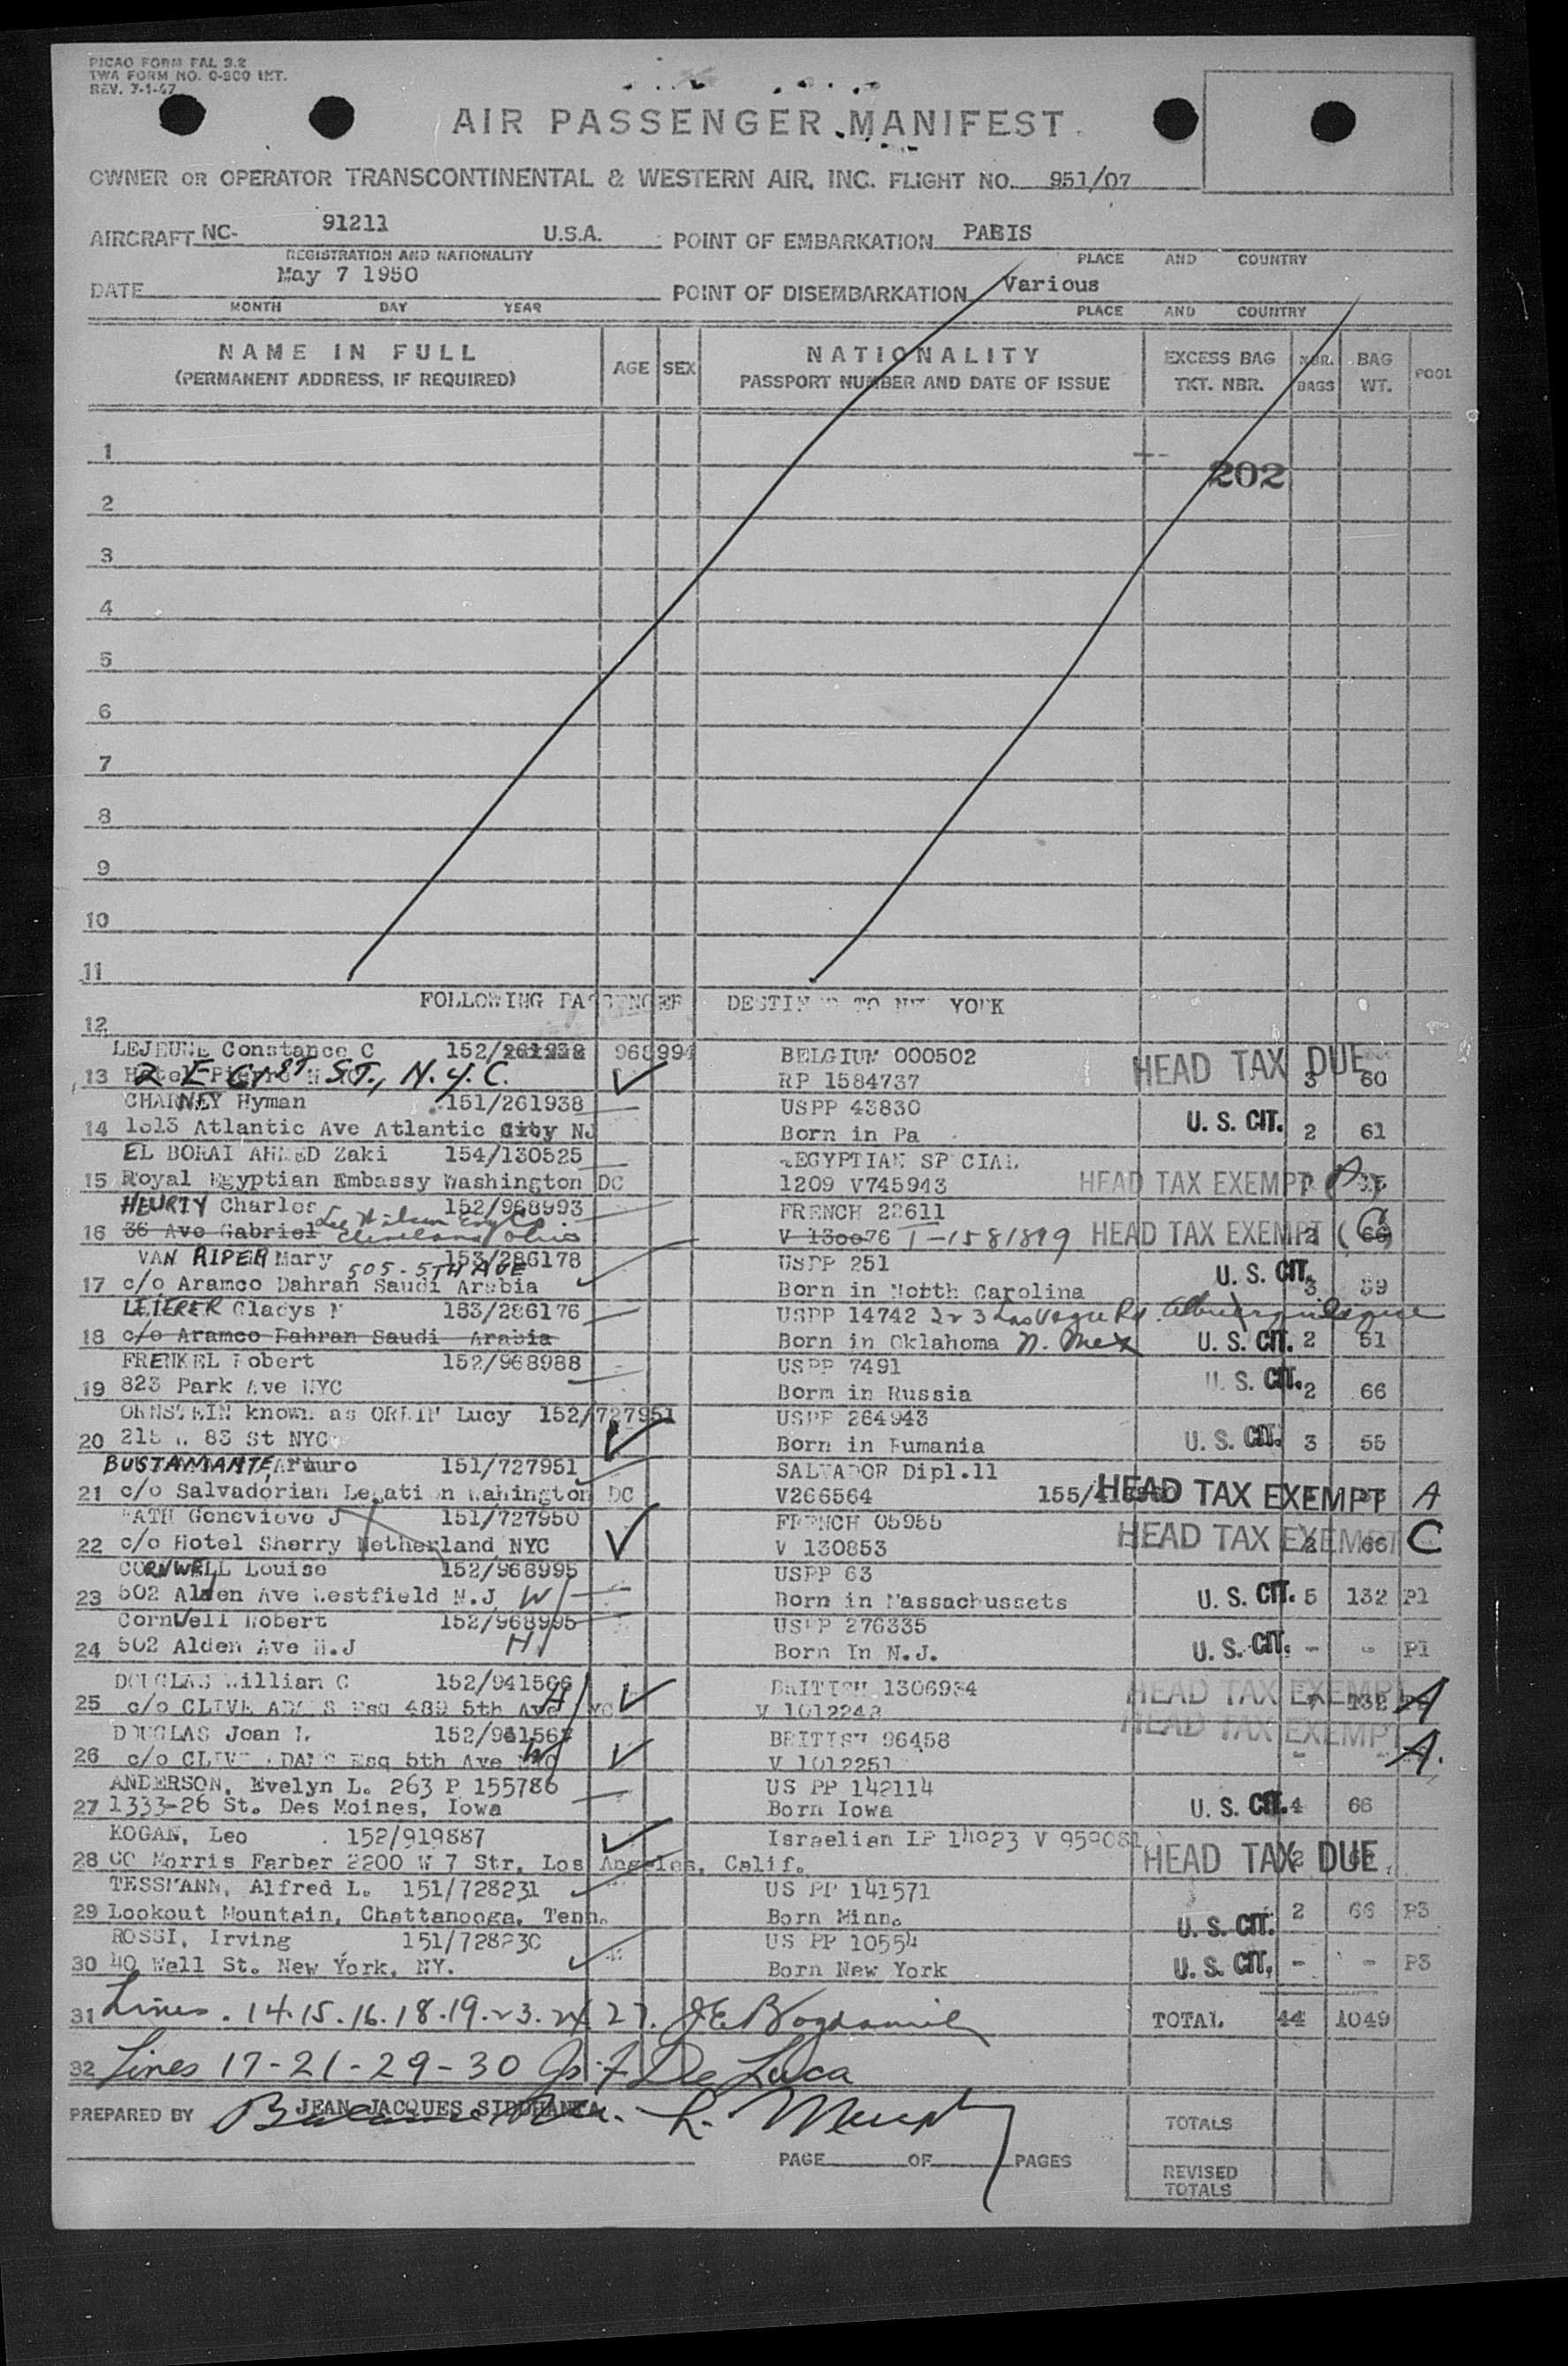 PICAO FORM FAL 3.2
TWA FORM NO. O-900 INT.
REV. 7-1-47
AIR PASSENGER MANIFEST
OWNER OR OPERATOR TRANSCONTINENTAL & WESTERN AIR, INC. FLIGHT NO. 951/07
AIRCRAFT NC- 91211 U.S.A. POINT OF EMBARKATION PARIS
REGISTRATION AND NATIONALITY PLACE AND COUNTRY
DATE May 7 1950 POINT OF DISEMBARKATION Various
MONTH DAY YEAR PLACE AND COUNTRY
NAME IN FULL AGE SEX NATIONALITY EXCESS BAG NBR. BAG POOL
(PERMANENT ADDRESS, IF REQUIRED) PASSPORT NUMBER AND DATE OF ISSUE TKT. NBR. BAGS WT.
1
202
2
3
4
5
6
7
8
9
10
11
FOLLOWING PASSENGER DESTINED TO NEW YORK
12
LEJEUNE Constance C 152/ 968994 BELGIUM 000502 HEAD TAX DUE
13 2 E 61ST ST., N.Y.C. RP 1584737 3 60
CHARNEY Hyman 151/261938 USPP 43830 U. S. CIT.
14 1313 Atlantic Ave Atlantic City NJ Born in Pa 2 61
EL BORAI AHMED Zaki 154/130525 EGYPTIAN SPECIAL
15 Royal Egyptian Embassy Washington DC 1209 V745943 HEAD TAX EXEMPT
HEURTY Charles 152/968993 FRENCH 22611
16 36 Ave Gabriel Cleveland Ohio V 130076 T-1581899 HEAD TAX EXEMPT 2 66
VAN RIPER Mary 153/286178 USPP 251 U. S. CIT.
505-5TH AVE
17 c/o Aramco Dahran Saudi Arabia Born in North Carolina 3 59
LEIERER Gladys 153/286176 USPP 14742
18 c/o Aramco Dahran Saudi Arabia Born in Oklahoma N. Mex U. S. CIT. 2 51
FRENKEL Robert 152/968988 USPP 7491 U. S. CIT.
19 823 Park Ave NYC Borm in Russia 2 66
ORNSTEIN known as ORLIN Lucy 152/727951 USPP 264943
20 215 W 83 St NYC Born in Rumania U. S. CIT. 3 55
BUSTAMANTE, Arturo 151/727951 SALVADOR Dipl.11
21 c/o Salvadorian Legation Wahington DC V266564 155/ HEAD TAX EXEMPT A
Genevieve J 151/727950 FRENCH 05955 HEAD TAX EXEMPT C
22 c/o Hotel Sherry Netherland NYC V 130853 2 66
CORNWELL Louise 152/968995 USPP 63
23 502 Alden Ave Westfield N.J W Born in Massachussets U. S. CIT. 5 132 P1
CornWell Robert 152/968995 USPP 276335
24 502 Alden Ave N.J H Born In N.J. U. S. CIT. - - P1
DOUGLAS William C 152/941566 BRITISH 1306934 HEAD TAX EXEMPT
25 c/o CLIVE ADAMS Esq 489 5th Ave NYC H V 1012248 132 A
DOUGLAS Joan 152/941567 BRITISH 96458 HEAD TAX EXEMPT
26 c/o CLIVE ADAMS Esq 5th Ave W V 1012251 - A.
ANDERSON, Evelyn L. 263 P 155786 US PP 142114
27 1333-26 St. Des Moines, Iowa Born Iowa U. S. CIT. 4 66
KOGAN, Leo 152/919887 Israelian LP 14023 V
28 CO Morris Farber 2200 W 7 Str, Los Angeles, Calif. HEAD TAX DUE 2
TESSMANN, Alfred L. 151/728231 US PP 141571
29 Lookout Mountain, Chattanooga, Tenn. Born Minn. U. S. CIT. 2 66 P3
ROSSI, Irving 151/728230 US PP 10554
30 40 Wall St. New York, NY. Born New York U. S. CIT. - - P3
31 Lines . 14.15.16.18.19.23.24 27. TOTAL 44 1049
32 Lines 17-21-29-30 De Luca
PREPARED BY JEAN JACQUES L. Murphy
TOTALS
PAGE OF PAGES
REVISED
TOTALS